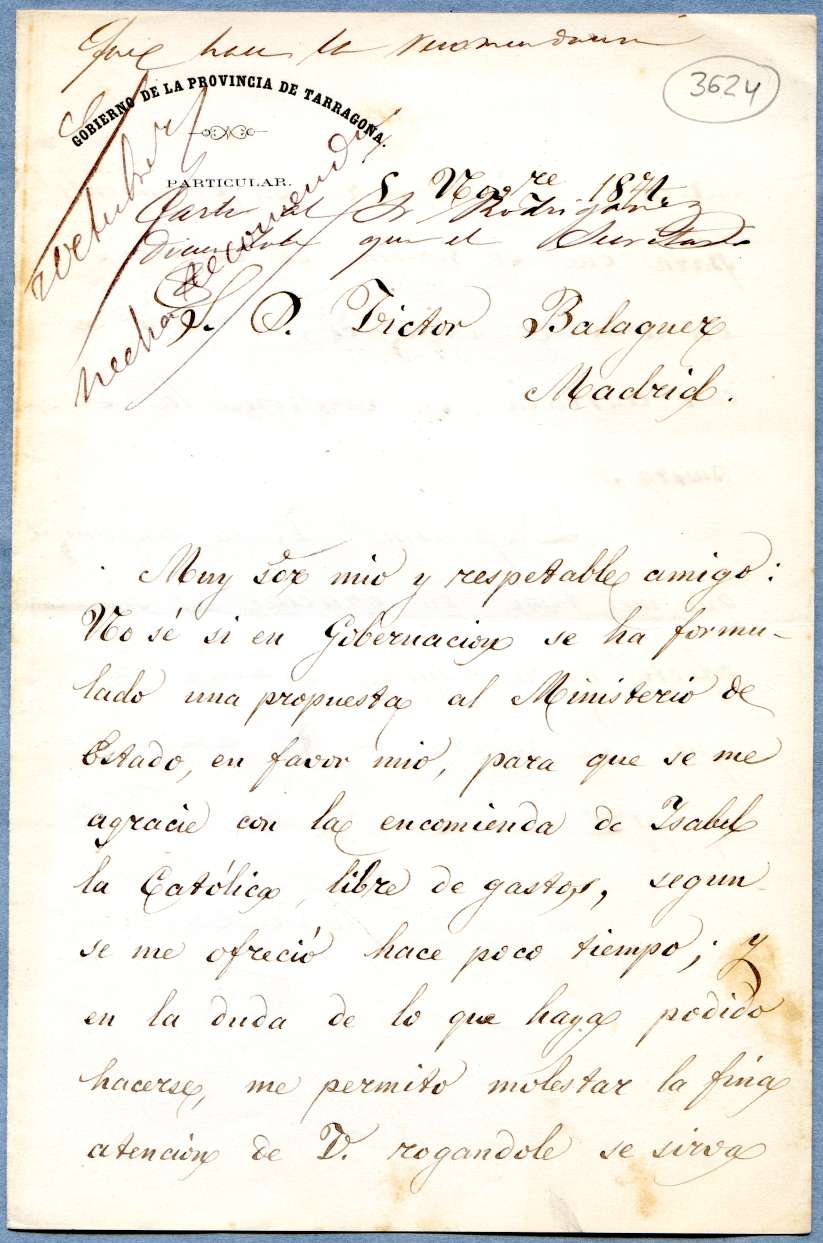 Que hace la recomendacion
3624
GOBIERNO DE LA PROVINCIA DE TARRAGONA.
PARTICULAR.
8 Novre 1871.
Carta al Sr Rodrigañez
que el Secretario
hecha recomendn
S. D. Victor Balaguer
Madrid.
Muy Sor mio y respetable amigo:
No sé si en Gobernacion se ha formu-
lado una propuesta al Ministerio de
Estado, en favor mio, para que se me
agracie con la encomienda de Isabel
la Católica, libre de gastos, segun
se me ofreció hace poco tiempo; y
en la duda de lo que haya podido
hacerse, me permito molestar la fina
atencion de V. rogandole se sirva